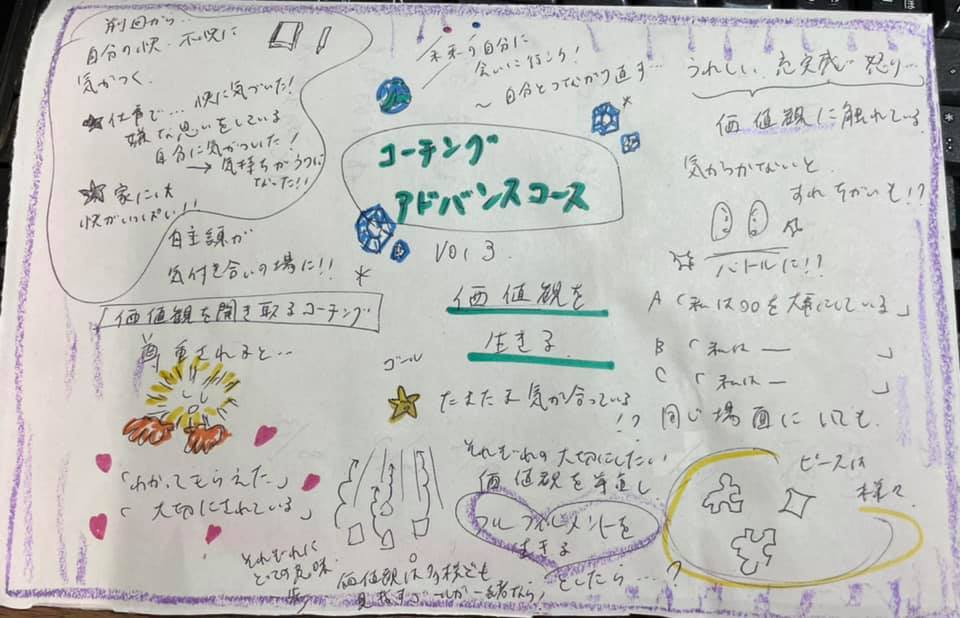 前回から…
自分の快・不快に
気がつく
仕事で… 快に気づいた!
嫌な思いをしている
自分に気がついた!
→ 気持ちがうつに
なった!!
家には
快がいっぱい!!
自主練が
気付き合いの場に!!
未来の自分に
会いに行ンク!
〜自分とつながり直す…
コーチング
アドバンスコース
vol 3.
価値観を
生きる
うれしい、充実感、怒り…
価値観に触れている
気がつかないと
すれちがいも!?
バトルに!?
A「私は○○を大事にしている」
B「私は ― 」
C「私は ― 」
同じ場面にいても
価値観を聞き取るコーチング
尊重されると…
「わかってもらえた」
「大切にされている」
ゴール
たまたま気が合っている
!?
それぞれの大切にしたい
価値観を尊重し
フルフィルメントを
生きる
ピースは
様々
それぞれに
とっての意味
価値観は多様でも
目指すゴールが一緒なら、としたら…?